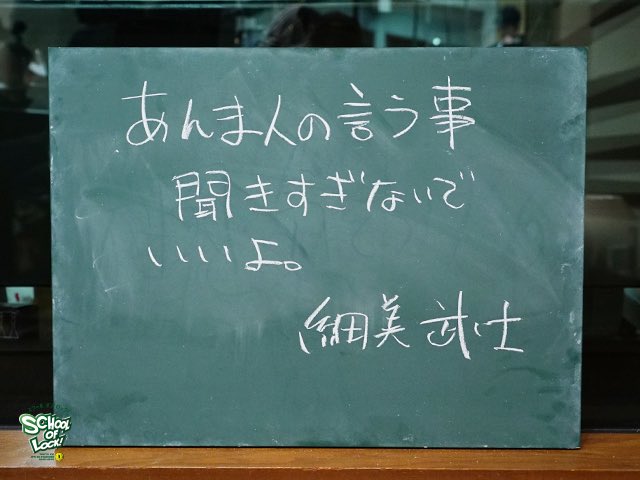 あんま人の言う事
聞きすぎないで
いいよ。
細美武士
SCHOOL
OF
LOCK!